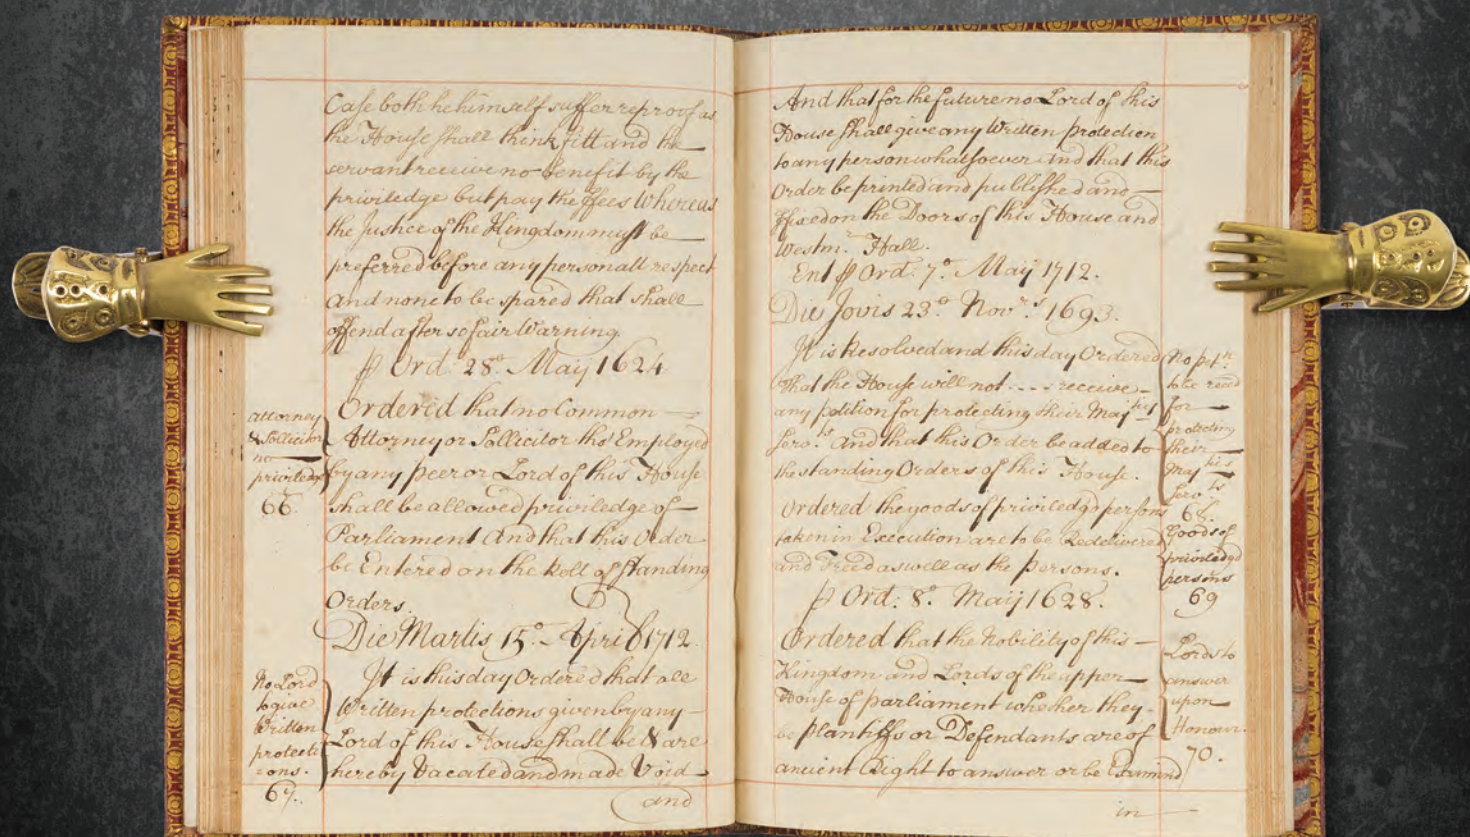 Case both he himself suffer reproof as
the House shall think fitt and the
servant receive no benefit by the
priviledge but pay the ffees Whereas
the Justice of the Kingdom must be
preferred before any personall respect
and none to be spared that shall
offend after so fair Warning.
P Ord: 28º May 1624
Ordered that no Common
Attorney or Sollicitor tho' Employed
by any peer or Lord of this House
shall be allowed priviledge of
Parliament And that this Order
be Entered on the Roll of Standing
Orders.
Attorney
& Sollicitor
no
priviledge
66.
Die Martis 15º April 1712.
It is this day Ordered that all
Written protections given by any
Lord of this House shall be & are
hereby Vacated and made Void
and
No Lord
to give
Written
protecti
=ons.
67.
And that for the future no Lord of this
House shall give any Written protection
to any person whatsoever And that this
Order be printed and published and
ffixed on the Doors of this House and
Westmr. Hall.
Ent P Ord: 7º May 1712.
Die Jovis 23º Novrs. 1693.
It is Resolved and this day Ordered
that the House will not - - - - receive
any petition for protecting their Majties
Servts. And that this Order be added to
the standing Orders of this House.
No petn.
to be read
for
protecting
their
Majties
Servts.
68.
Ordered the goods of priviledgd persons
taken in Execution are to be Redelivered
and Freed as well as the persons.
P Ord: 8º May 1628.
Goods of
priviledgd
persons
69
Ordered that the Nobility of this
Kingdom and Lords of the upper
House of parliament whether they
be plantiffs or Defendants are of
ancient Right to answer or be Examind
in
Lords to
answer
upon
Honour.
70.